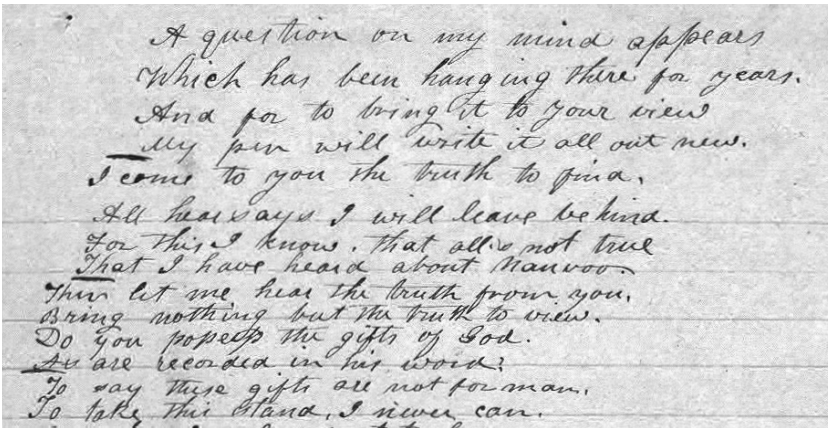 A question on my mind appears
Which has been hanging there for years.
And for to bring it to your view
My pen will write it all out new.
I come to you the truth to find.
All hearsays I will leave behind.
For this I know, that all is not true
That I have heard about Nauvoo.
Then let me hear the truth from you.
Bring nothing but the truth to view.
Do you posess the gifts of God.
As are recorded in his word?
To say these gifts are not for man,
To take this stand, I never can.